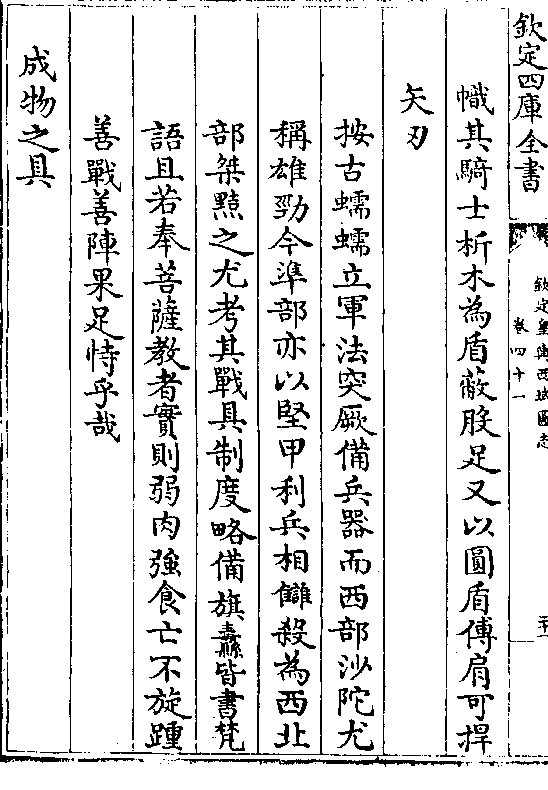 欽定四庫全書
欽定皇輿西域圖志
卷四十一
幟其騎士析木為盾蔽股足又以圓盾傅肩可捍
矢刃
按古蠕蠕立軍法突厥備兵器而西部沙陀尤
稱雄勁今準部亦以堅甲利兵相讎殺為西北
部桀黠之尤考其戰具制度略備旗纛皆書梵
語且若奉菩薩教者實則弱肉強食亡不旋踵
善戰善陣果足恃乎哉
成物之具